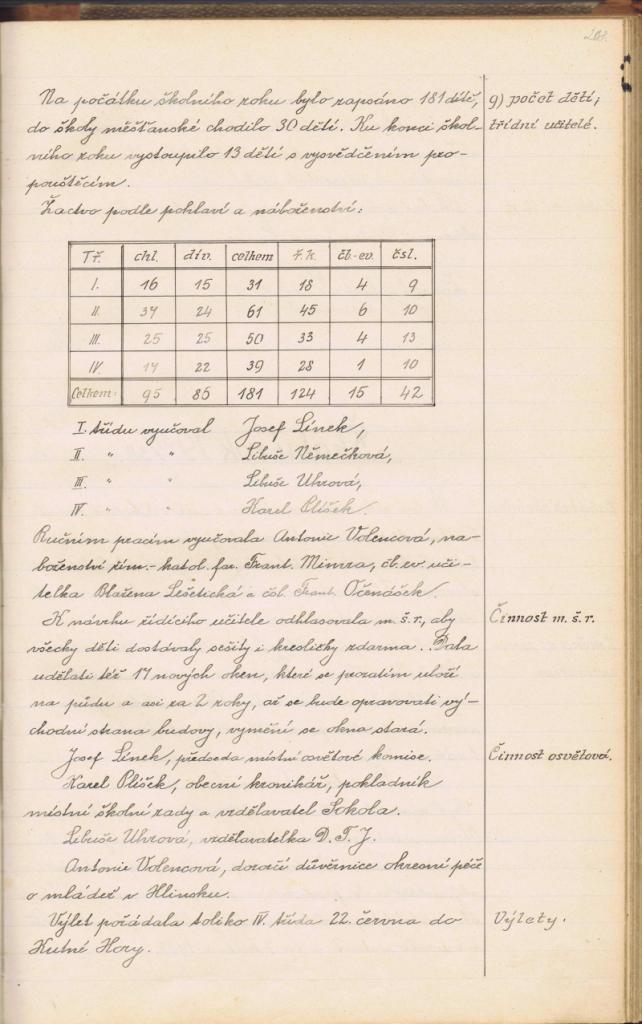 201.
Na počátku školního roku bylo zapsáno 181 dítě,
do školy měšťanské chodilo 30 dětí. Ku konci škol-
ního roku vystoupilo 13 dětí s vysvědčením pro-
pouštěcím.
Žactvo podle pohlaví a náboženství:
g) počet dětí;
třídní učitelé.
Tř. chl. dív. celkem ř.k. čb.-ev. čsl.
I. 16 15 31 18 4 9
II. 37 24 61 45 6 10
III. 25 25 50 33 4 13
IV. 17 22 39 28 1 10
Celkem: 95 85 181 124 15 42
I. třídu vyučoval Josef Línek,
II. " " Libuše Němečková,
III. " " Libuše Uhrová,
IV. " " Karel Plíšek.
Ručním pracím vyučovala Antonie Volencová, ná-
boženství řím.-katol. far. Frant. Mimra, čb. ev. uči-
telka Blažena Lešetická a čsl. Frant. Očenášek.
K návrhu řídícího učitele odhlasovala m. š. r., aby
všecky děti dostávaly sešity i kresličky zdarma. Dala
udělati též 17 nových oken, které se prozatím uloží
na půdu a asi za 2 roky, až se bude opravovati vý-
chodní strana budovy, vymění se okna stará.
Činnost m. š. r.
Josef Línek, předseda místní osvětové komise.
Karel Plíšek, obecní kronikář, pokladník
místní školní rady a vzdělavatel Sokola.
Libuše Uhrová, vzdělavatelka D. T. J.
Antonie Volencová, dozorčí důvěrnice okresní péče
o mládež v Hlinsku.
Činnost osvětová.
Výlet pořádala toliko IV. třída 22. června do
Kutné Hory.
Výlety.